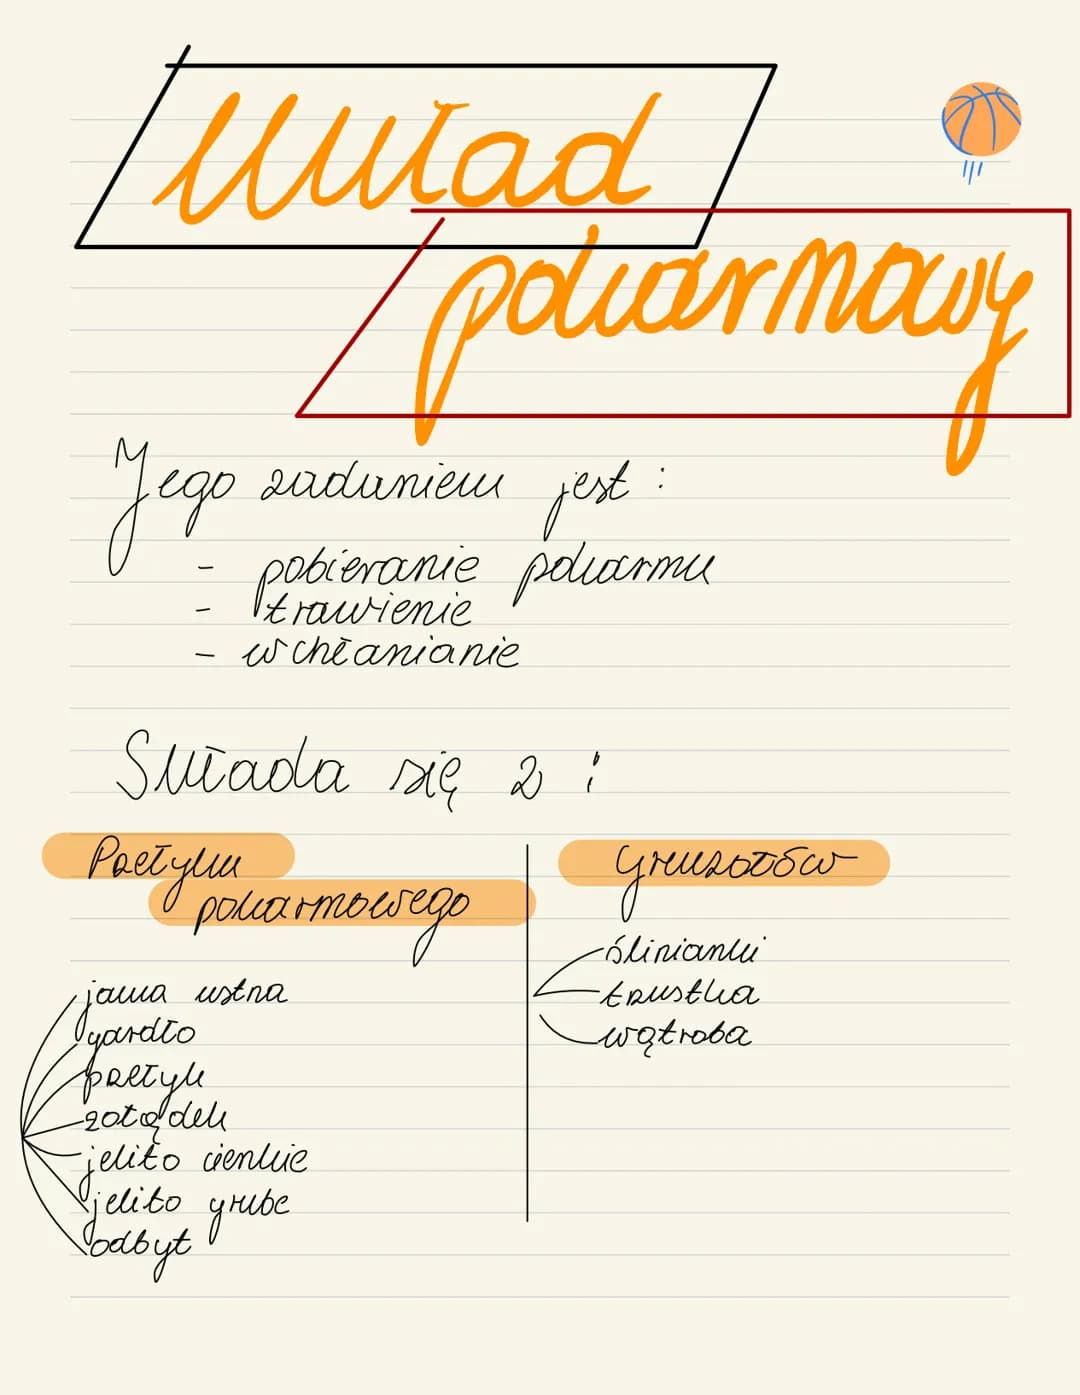 Układ
pokarmowy
Jego zadaniem jest:
- pobieranie pokarmu
- trawienie
- wchłanianie
Składa się z:
Przełyku
pokarmowego
gruczołów
jama ustna
gardło
przełyk
żołądek
jelito cienkie
jelito grube
odbyt
ślinianki
trzustka
wątroba